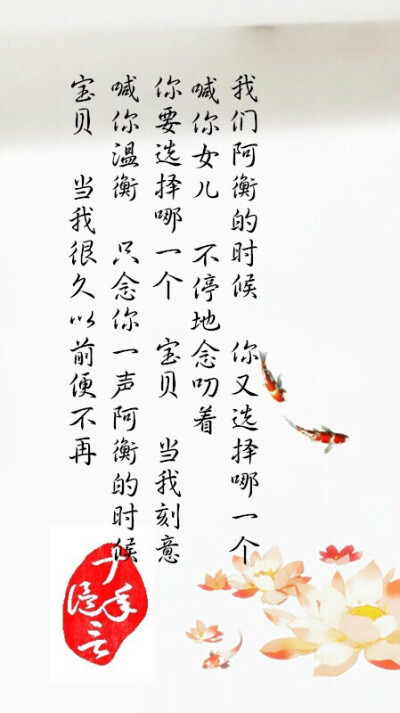 宝贝 当我很久以前便不再
喊你温衡 只念你一声阿衡的时候
你要选择哪一个 宝贝 当我刻意
喊你女儿 不停地念叨着
我们阿衡的时候 你又选择哪一个